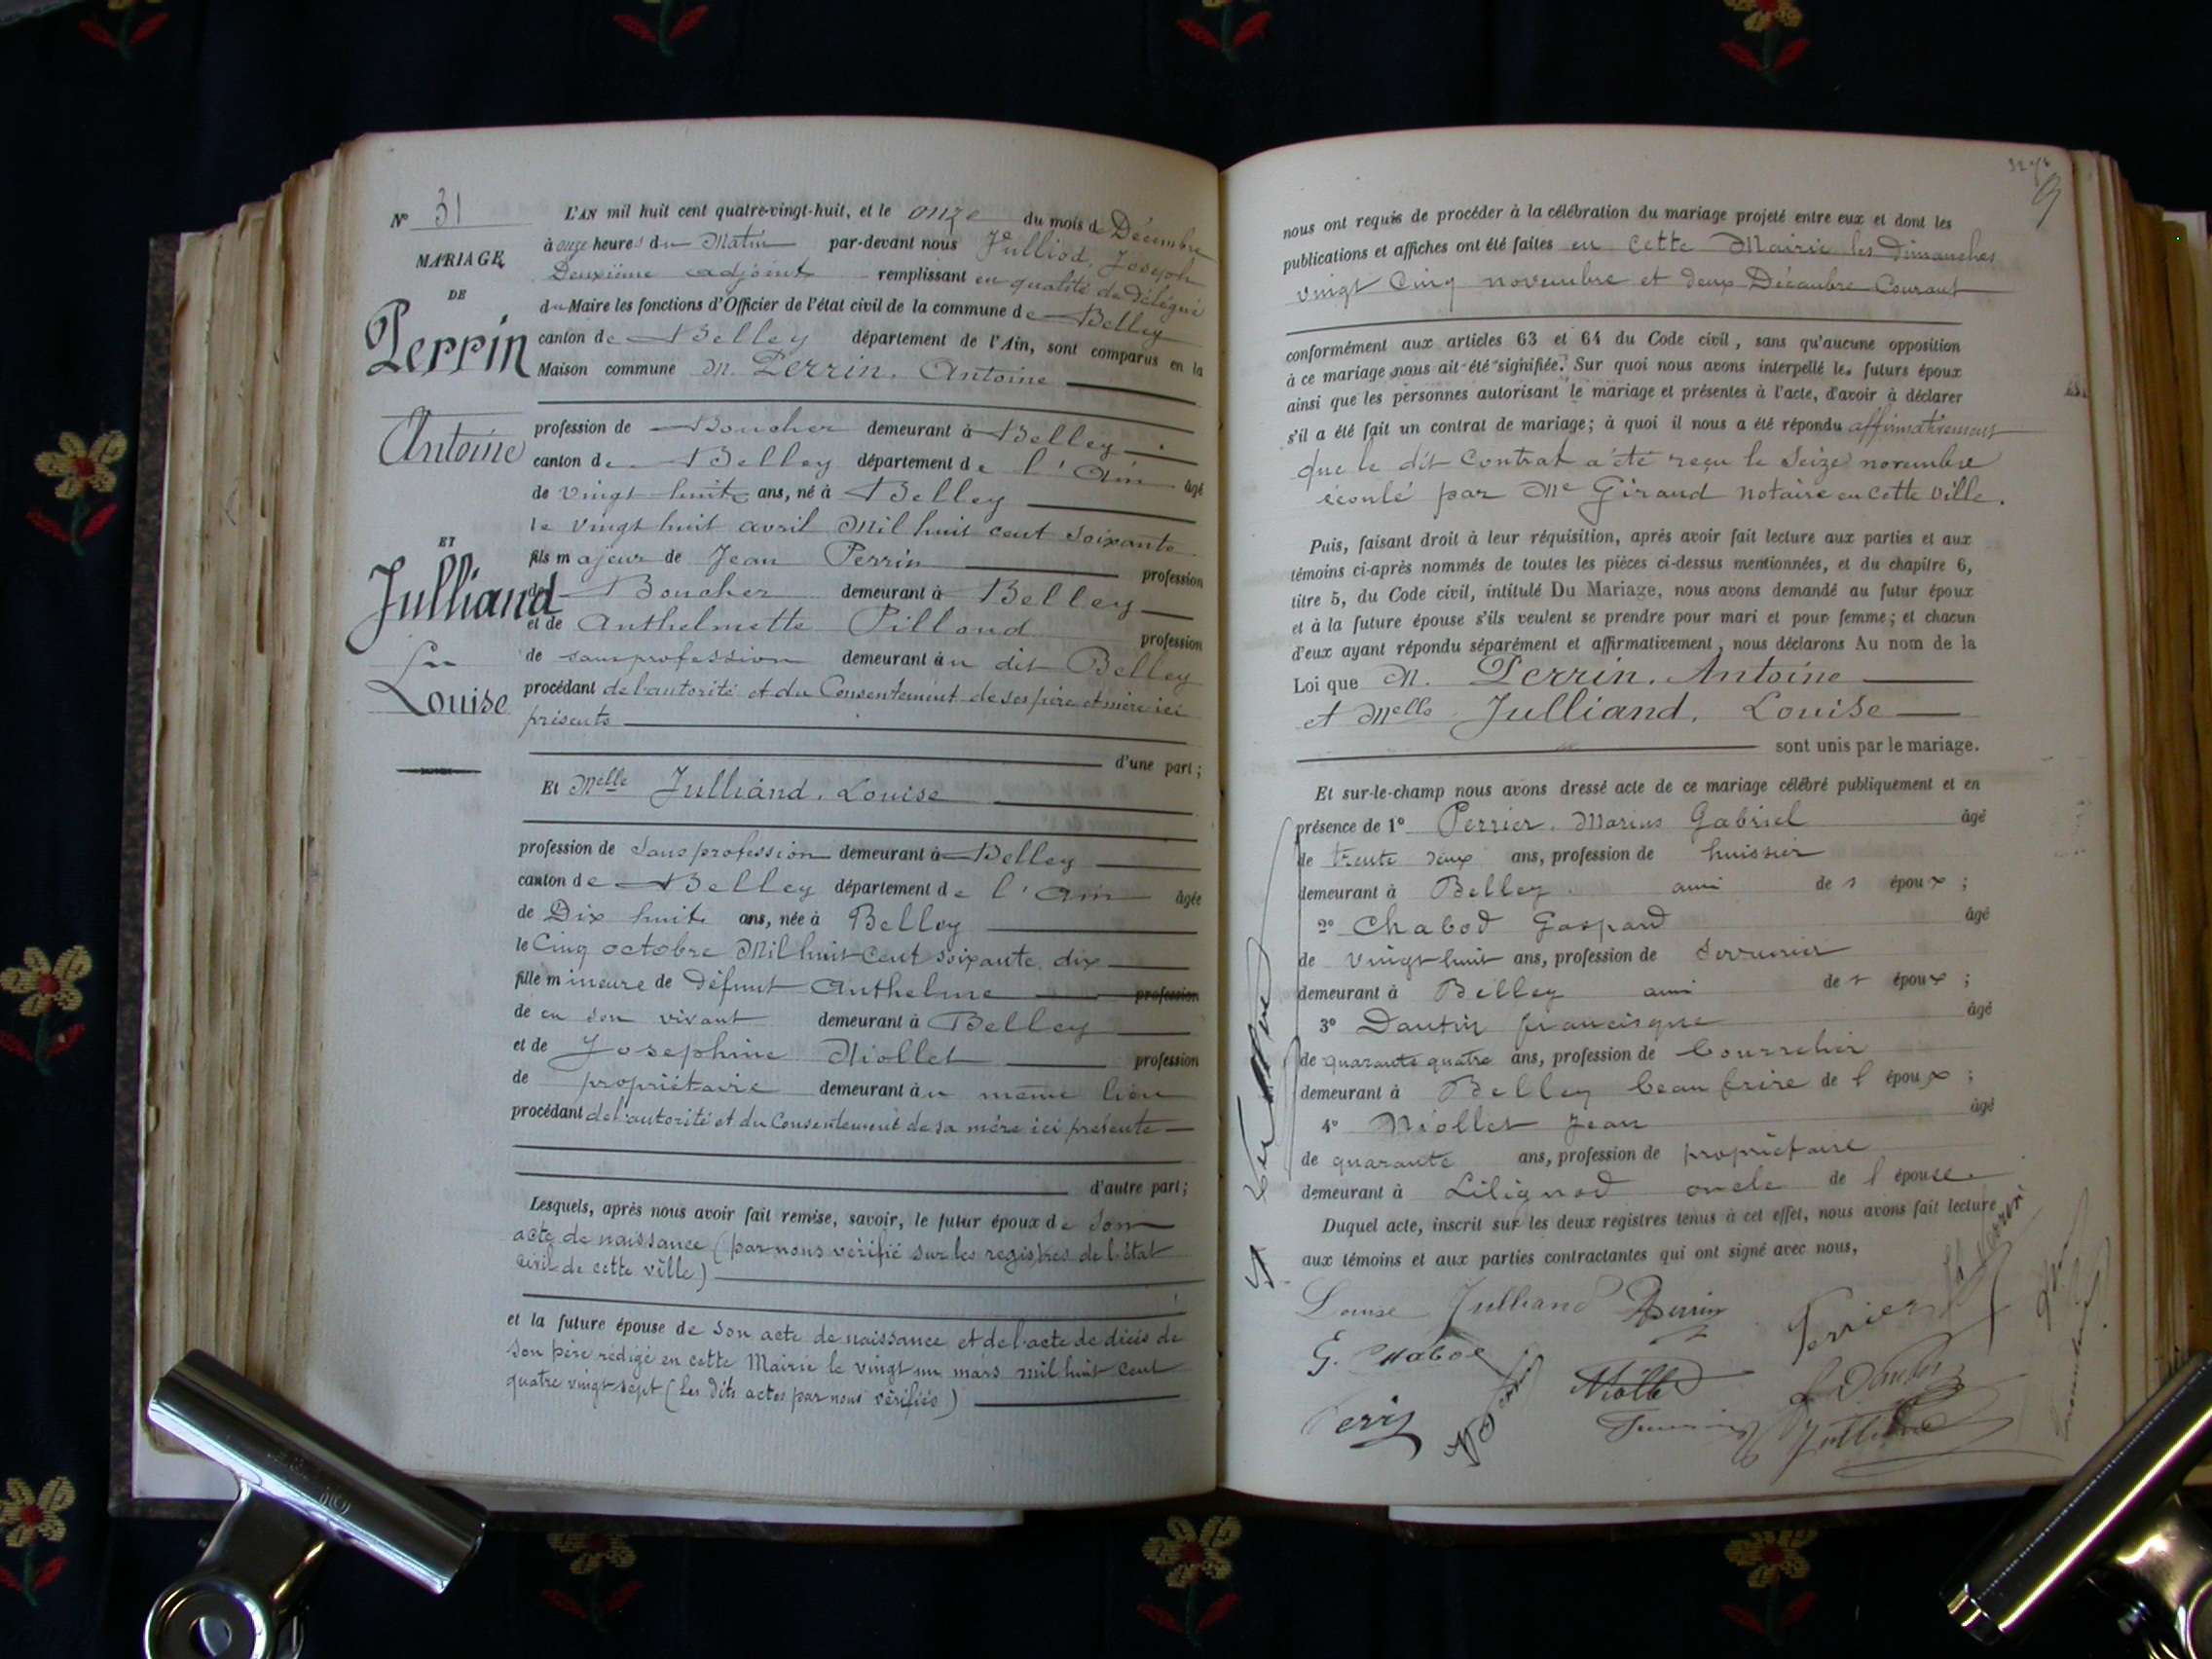 N° 31
MARIAGE
DE
Perrin
Antoine
ET
Julliand
Louise
L'AN mil huit cent quatre-vingt-huit, et le onze du mois de Décembre
à onze heures du Matin par-devant nous Julliod, Joseph
Deuxième adjoint remplissant en qualité de délégué
du Maire les fonctions d'Officier de l'état civil de la commune de Belley
canton de Belley département de l'Ain, sont comparus en la
Maison commune M. Perrin, Antoine
profession de Boucher demeurant à Belley
canton de Belley département de l'Ain âgé
de vingt huit ans, né à Belley
le vingt huit avril Mil huit cent soixante
fils majeur de Jean Perrin profession
de Boucher demeurant à Belley
et de Anthelmette Pilloud profession
de sans profession demeurant au dit Belley
procédant de l'autorité et du Consentement de ses père et mère ici
présents
d'une part;
Et Melle Julliand, Louise
profession de Sans profession demeurant à Belley
canton de Belley département de l'Ain âgée
de Dix huit ans, née à Belley
le Cinq octobre Mil huit Cent soixante dix
fille mineure de Défunt Anthelme profession
de en son vivant demeurant à Belley
et de Josephine Niollet profession
de propriétaire demeurant au même lieu
procédant de l'autorité et du Consentement de sa mère ici présente
d'autre part;
Lesquels, après nous avoir fait remise, savoir, le futur époux de Son
acte de naissance (par nous vérifié sur les registres de l'état
civil de cette ville)
et la future épouse de Son acte de naissance et de l'acte de décès de
Son père rédigé en cette Mairie le vingt un mars mil huit cent
quatre vingt sept (Les dits actes par nous vérifiés)
nous ont requis de procéder à la célébration du mariage projeté entre eux et dont les
publications et affiches ont été faites en cette Mairie les Dimanches
vingt Cinq novembre et deux Décembre Courant
conformément aux articles 63 et 64 du Code civil, sans qu'aucune opposition
à ce mariage nous ait été signifiée. Sur quoi nous avons interpellé les futurs époux
ainsi que les personnes autorisant le mariage et présentes à l'acte, d'avoir à déclarer
s'il a été fait un contrat de mariage; à quoi il nous a été répondu affirmativement
que le dit Contrat a été reçu le Seize novembre
écoulé par Me Giraud notaire en cette ville.
Puis, faisant droit à leur réquisition, après avoir fait lecture aux parties et aux
témoins ci-après nommés de toutes les pièces ci-dessus mentionnées, et du chapitre 6,
titre 5, du Code civil, intitulé Du Mariage, nous avons demandé au futur époux
et à la future épouse s'ils veulent se prendre pour mari et pour femme; et chacun
d'eux ayant répondu séparément et affirmativement, nous déclarons Au nom de la
Loi que M. Perrin, Antoine
et Melle Julliand, Louise
sont unis par le mariage.
Et sur-le-champ nous avons dressé acte de ce mariage célébré publiquement et en
présence de 1° Perrier, Marius Gabriel âgé
de trente deux ans, profession de huissier
demeurant à Belley ami des époux;
2° Chabod Gaspard âgé
de vingt huit ans, profession de Serrurier
demeurant à Belley ami des époux;
3° Dantin francisque âgé
de quarante quatre ans, profession de bourrelier
demeurant à Belley beau frère de l'époux;
4° Niollet Jean âgé
de quarante ans, profession de propriétaire
demeurant à Lilignod oncle de l'épouse.
Duquel acte, inscrit sur les deux registres tenus à cet effet, nous avons fait lecture
aux témoins et aux parties contractantes qui ont signé avec nous,
Louise Julliand Perrin Perrier
G. Chabod Niollet
Perrin